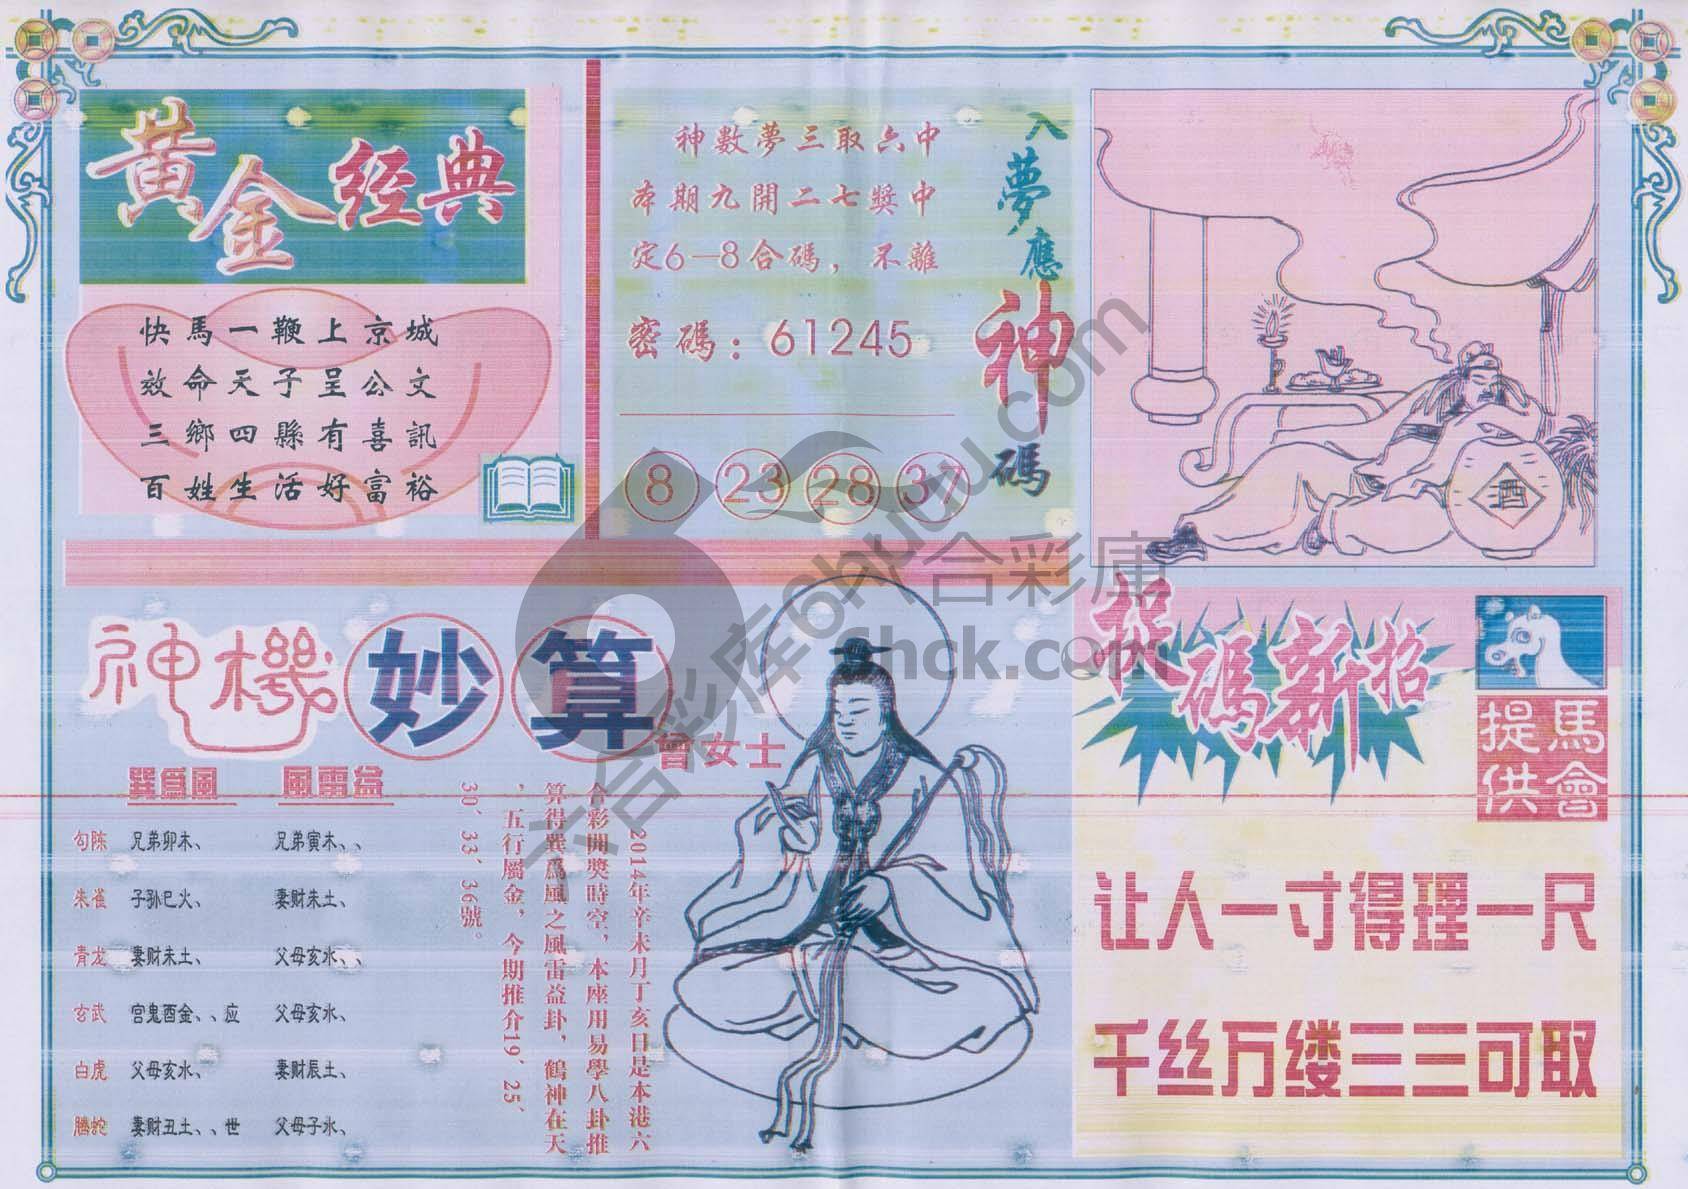 黄金经典
快馬一鞭上京城
效命天子呈公文
三鄉四縣有喜訊
百姓生活好富裕
神數夢三取六中
本期九開二七獎中
定6—8合碼，不離
密碼：61245
8 23 28 37
入夢應神碼
酒
神機妙算
曾女士
巽爲風 風雷益
句陈 兄弟卯木、 兄弟寅木、、
朱雀 子孙巳火、 妻财未土、
青龙 妻财未土、 父母亥水、、
玄武 官鬼酉金、、应 父母亥水、
白虎 父母亥水、 妻财辰土、
騰蛇 妻财丑土、、世 父母子水、
2014年辛未月丁亥日是本港六
合彩開獎時空，本座用易學八卦推
算得巽爲風之風雷益卦，鶴神在天
，五行屬金，今期推介19、25、
30、33、36號。
捉碼新招
馬會
提供
让人一寸得理一尺
千丝万缕三三可取
六合彩库6hpku.com
六合彩庫
6hck.com